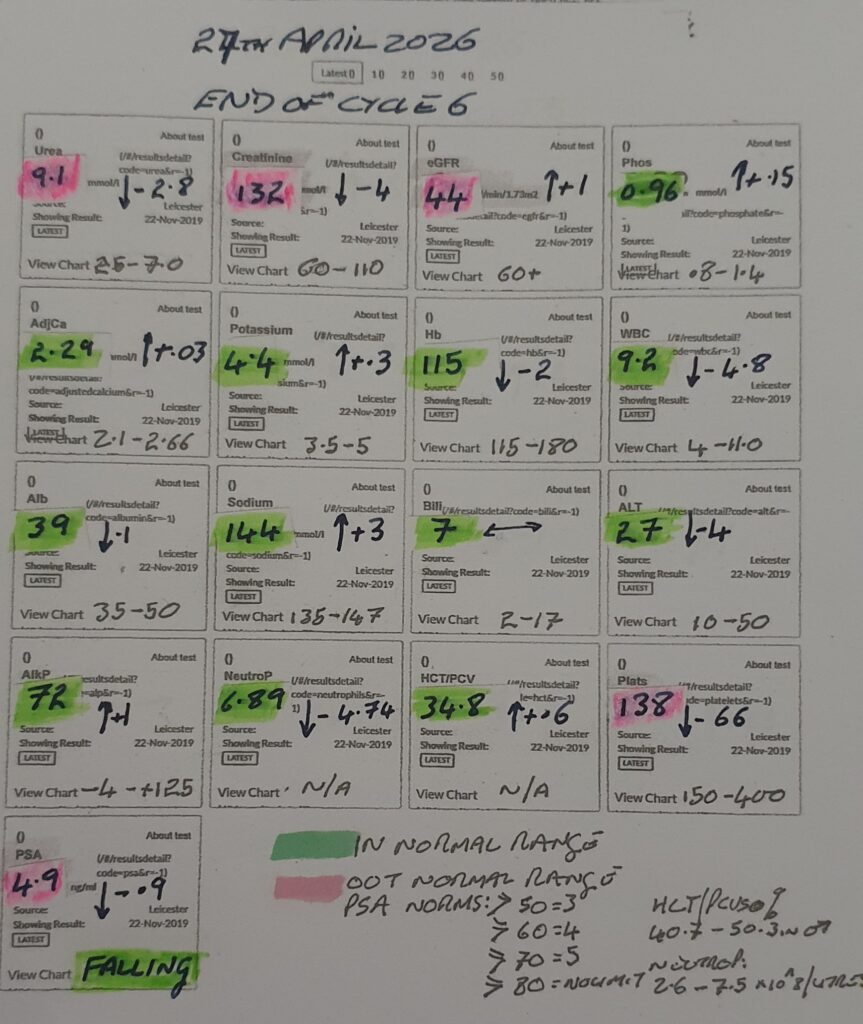 27TH APRIL 2026
Latest () 10 20 30 40 50
END OF CYCLE 6
() About test
Urea (/#/resultsdetail?
code=urea&r=-1)
9.1 mmol/l ↓-2.8
Source: Leicester
Showing Result: 22-Nov-2019
LATEST
View Chart 2.5-7.0
() About test
Creatinine (/#/resultsdetail?
132 mol/l ↓-4
&r=-1)
Source: Leicester
Showing Result: 22-Nov-2019
LATEST
View Chart 60-110
() About test
eGFR
44 l/min/1.73m2 ↑+1
etail?code=egfr&r=-1)
Source: Leicester
Showing Result: 22-Nov-2019
LATEST
View Chart 60+
() About test
Phos
0.96 mmol/l ↑+.15
il?code=phosphate&r=-
1)
Source: Leicester
Showing Result: 22-Nov-2019
LATEST
View Chart .8-1.4
() About test
AdjCa
2.29 mmol/l ↑+.03
(/#/resultsdetail?
code=adjustedcalcium&r=-1)
Source: Leicester
Showing Result: 22-Nov-2019
LATEST
View Chart 2.1-2.66
() About test
Potassium (/#/resultsdetail?
4.4 mmol/l ↑+.3
sium&r=-1)
Source: Leicester
Showing Result: 22-Nov-2019
LATEST
View Chart 3.5-5
() About test
Hb (/#/resultsdetail?
code=hb&r=-1)
115 ↓-2
Source: Leicester
Showing Result: 22-Nov-2019
LATEST
View Chart 115-180
() About test
WBC (/#/resultsdetail?
ode=wbc&r=-1)
9.2 ↓-4.8
Source: Leicester
Showing Result: 22-Nov-2019
LATEST
View Chart 4-11.0
() About test
Alb (/#/resultsdetail?
code=albumin&r=-1)
39 ↓-1
Source: Leicester
Showing Result: 22-Nov-2019
LATEST
View Chart 35-50
() About test
Sodium (/#/resultsdetail?
144 mmol/l ↑+3
code=sodium&r=-1)
Source: Leicester
Showing Result: 22-Nov-2019
LATEST
View Chart 135-147
() About test
Bili (/#/resultsdetail?code=bili&r=-1)
7 ↔
Source: Leicester
Showing Result: 22-Nov-2019
LATEST
View Chart 2-17
() About test
ALT (/#/resultsdetail?code=alt&r=-
27 ↓-4
Source: Leicester
Showing Result: 22-Nov-2019
LATEST
View Chart 10-50
() About test
AlkP esultsdetail?
=alp&r=-1)
72 ↑+1
Source: Leicester
Showing Result: 22-Nov-2019
LATEST
View Chart -4-+125
() About test
NeutroP (/#/resultsdetail?
code=neutrophils&r=-
6.89 1) ↓-4.74
Source: Leicester
Showing Result: 22-Nov-2019
LATEST
View Chart N/A
() About test
HCT/PCV /resultsdetail?
le=hct&r=-1)
34.8 ↑+.6
Source: Leicester
Showing Result: 22-Nov-2019
LATEST
View Chart N/A
() About test
Plats /resultsdetail?
de=platelets&r=-1)
138 ↓-66
Source: Leicester
Showing Result: 22-Nov-2019
LATEST
View Chart 150-400
() About test
PSA (/#/resultsdetail?
code=psa&r=-1)
4.9 ng/ml ↓-.9
Source: Leicester
Showing Result: 22-Nov-2019
LATEST
View Chart FALLING
IN NORMAL RANGE
OUT NORMAL RANGE
PSA NORMS: > 50=3
> 60=4
> 70=5
> 80=NO LIMIT
HCT/PCV %
40.7-50.3 IN ♂
NEUTROP:
2.6-7.5 x10^8/LITRES